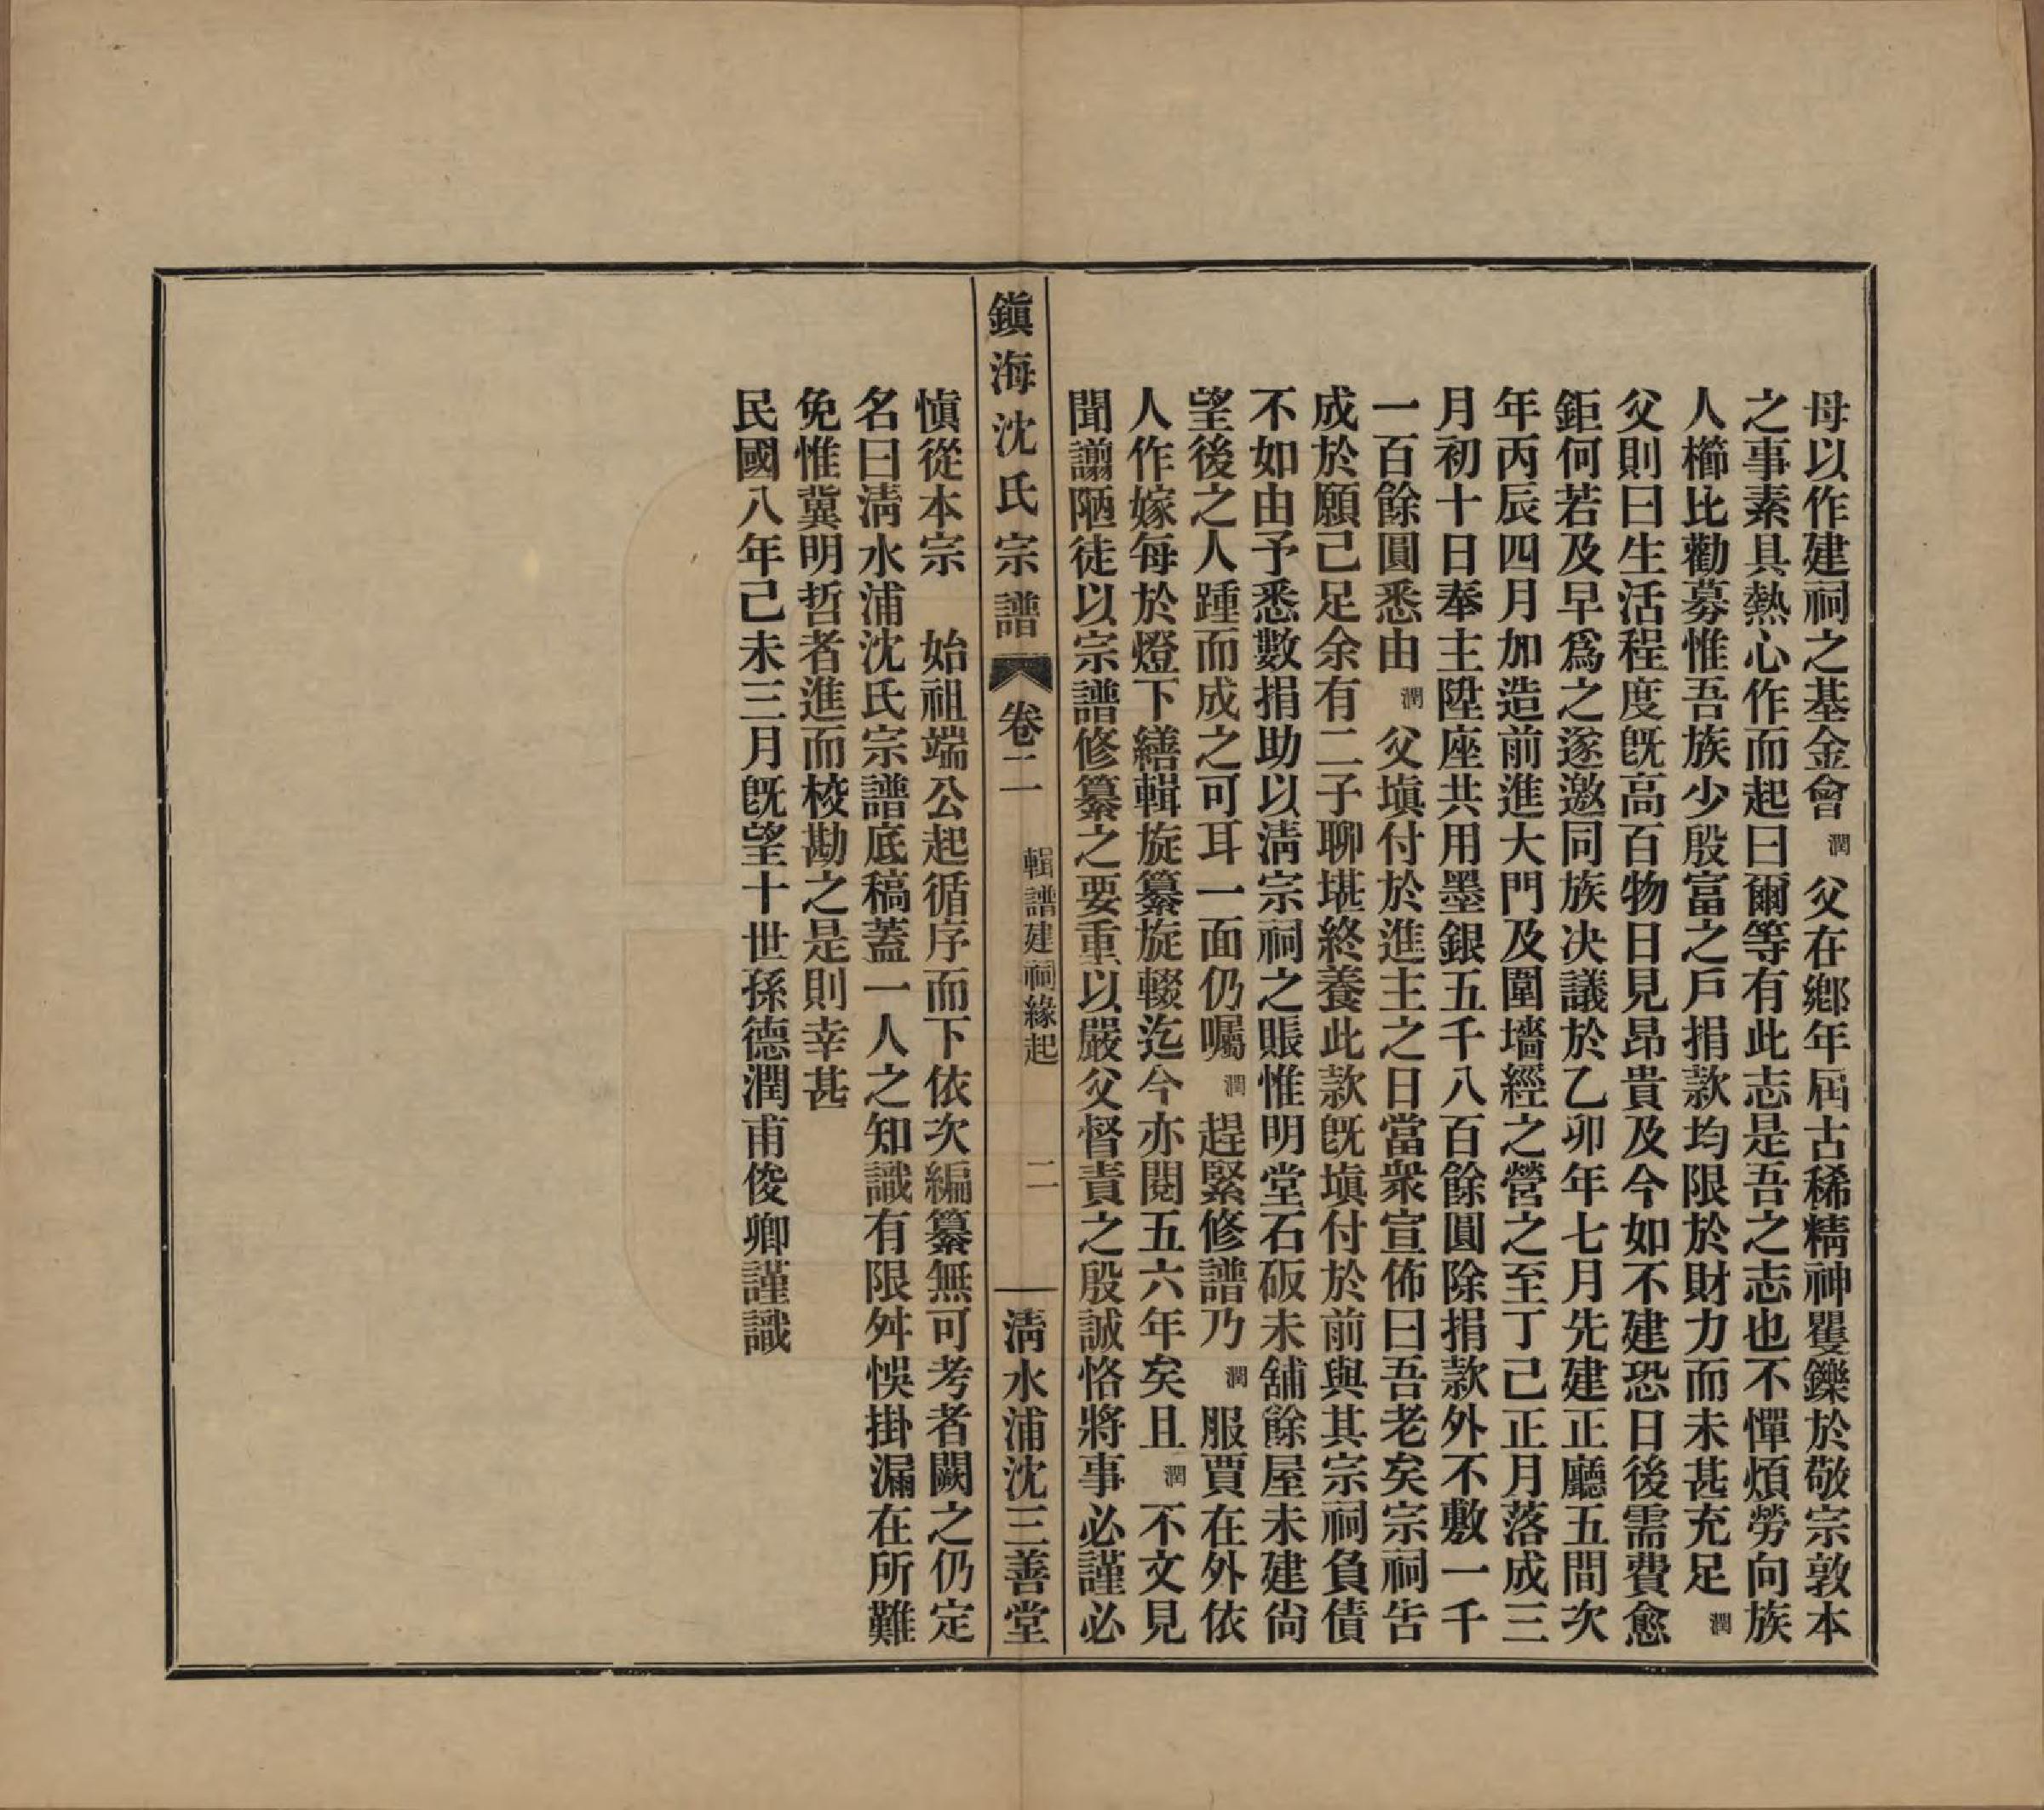 母以作建祠之基金會潤父在鄉年屆古稀精神矍鑠於敬宗敦本
之事素具熱心作而起曰爾等有此志是吾之志也不憚煩勞向族
人櫛比勸募惟吾族少殷富之戶捐款均限於財力而未甚充足潤
父則曰生活程度旣高百物日見昂貴及今如不建恐日後需費愈
鉅何若及早爲之遂邀同族決議於乙卯年七月先建正廳五間次
年丙辰四月加造前進大門及圍墻經之營之至丁己正月落成三
月初十日奉主陞座共用墨銀五千八百餘圓除捐款外不敷一千
一百餘圓悉由潤父塡付於進主之日當衆宣佈曰吾老矣宗祠告
成於願已足余有二子聊堪終養此款旣塡付於前與其宗祠負債
不如由予悉數捐助以淸宗祠之賬惟明堂石砐未舖餘屋未建尙
望後之人踵而成之可耳一面仍囑潤趕緊修譜乃潤服賈在外依
人作嫁每於燈下繕輯旋纂旋輟迄今亦閱五六年矣且潤不文見
聞譾陋徒以宗譜修纂之要重以嚴父督責之殷誠恪將事必謹必
鎭海沈氏宗譜 卷二 輯譜建祠緣起 二 淸水浦沈三善堂
愼從本宗 始祖端公起循序而下依次編纂無可考者闕之仍定
名曰淸水浦沈氏宗譜底稿蓋一人之知識有限舛悞掛漏在所難
免惟冀明哲者進而校勘之是則幸甚
民國八年己未三月旣望十世孫德潤甫俊卿謹識